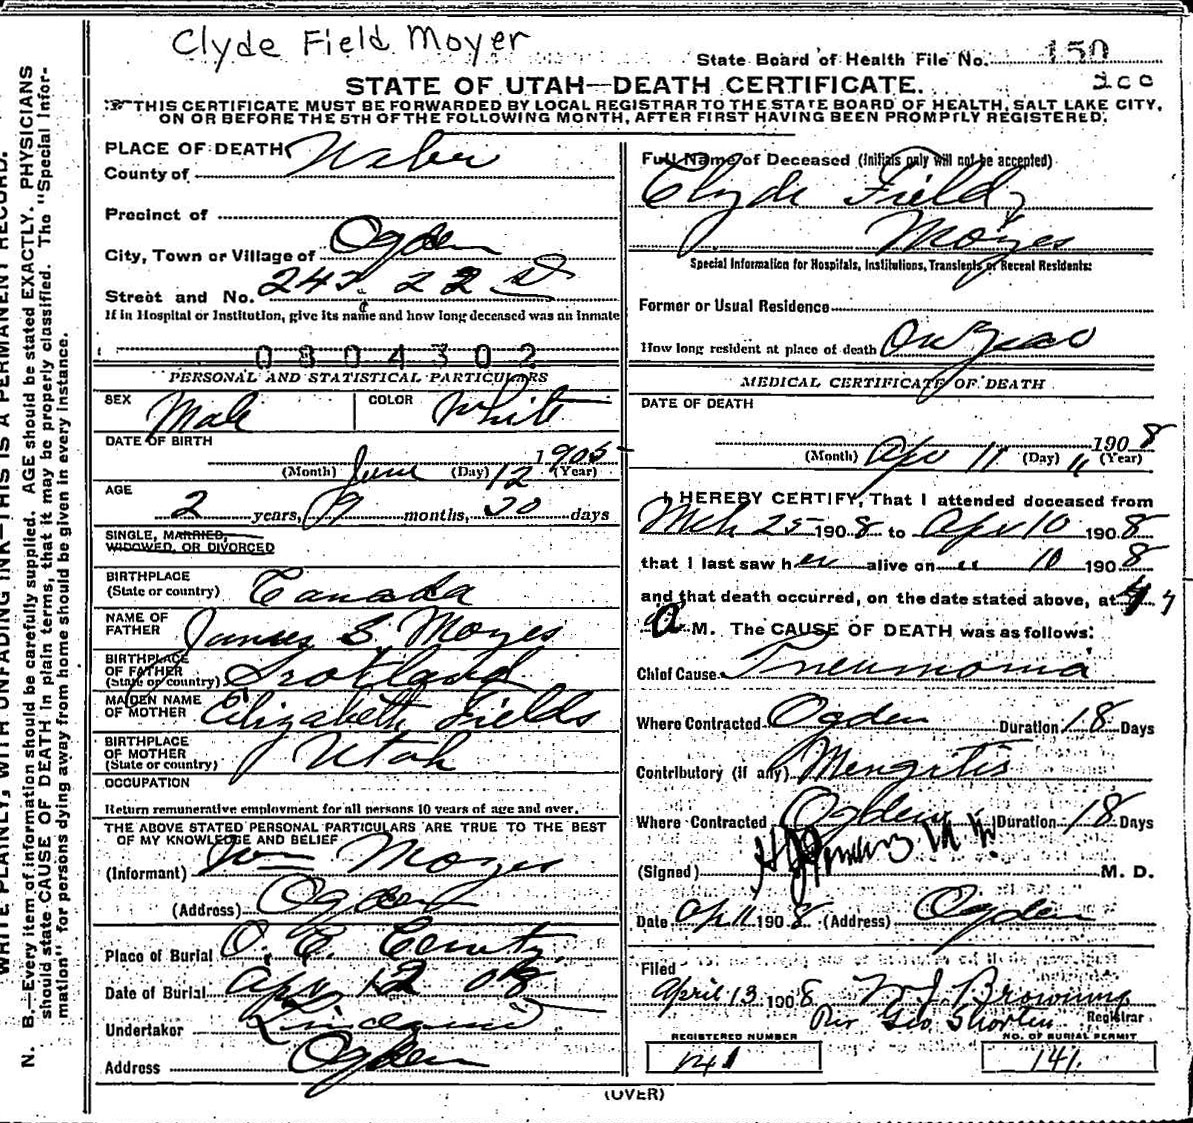 Clyde Field Moyer
State Board of Health File No. 150
200
STATE OF UTAH—DEATH CERTIFICATE.
THIS CERTIFICATE MUST BE FORWARDED BY LOCAL REGISTRAR TO THE STATE BOARD OF HEALTH, SALT LAKE CITY,
ON OR BEFORE THE 5TH OF THE FOLLOWING MONTH, AFTER FIRST HAVING BEEN PROMPTLY REGISTERED.
PLACE OF DEATH
County of Weber
Precinct of
City, Town or Village of Ogden
Street and No. 242 22 St
If in Hospital or Institution, give its name and how long deceased was an inmate
0804302
PERSONAL AND STATISTICAL PARTICULARS
SEX Male COLOR White
DATE OF BIRTH
1905
(Month) June (Day) 12 (Year)
AGE
2 years, 9 months, 30 days
SINGLE, MARRIED,
WIDOWED, OR DIVORCED
BIRTHPLACE
(State or country) Canada
NAME OF
FATHER James S. Moyes
BIRTHPLACE
OF FATHER
(State or country) Scotland
MAIDEN NAME
OF MOTHER Elizabeth Fields
BIRTHPLACE
OF MOTHER
(State or country) Utah
OCCUPATION
Return remunerative employment for all persons 10 years of age and over.
THE ABOVE STATED PERSONAL PARTICULARS ARE TRUE TO THE BEST
OF MY KNOWLEDGE AND BELIEF
(Informant) Wm Moyes
(Address) Ogden
Place of Burial O. C. Cemty.
Date of Burial Apr 12 08
Undertaker
Address Ogden
Full Name of Deceased (Initials only will not be accepted)
Clyde Field
Moyes
Special Information for Hospitals, Institutions, Transients or Recent Residents:
Former or Usual Residence
How long resident at place of death One Year
MEDICAL CERTIFICATE OF DEATH
DATE OF DEATH
1908
(Month) Apr 11 (Day) (Year)
I HEREBY CERTIFY, That I attended deceased from
Mch 25 1908 to Apr 10 1908
that I last saw h alive on " 10 1908
and that death occurred, on the date stated above, at
A M. The CAUSE OF DEATH was as follows:
Chief Cause Pneumonia
Where Contracted Ogden Duration 18 Days
Contributory (if any) Mengitis
Where Contracted Ogden Duration 18 Days
(Signed) M. D.
Date Apr 11 1908 (Address) Ogden
Filed
April 13 1908 W J Browning
Per Geo Shorten Registrar
REGISTERED NUMBER
141
NO. OF BURIAL PERMIT
141
(OVER)
WRITE PLAINLY, WITH UNFADING INK—THIS IS A PERMANENT RECORD.
N. B.—Every item of information should be carefully supplied. AGE should be stated EXACTLY. PHYSICIANS
should state CAUSE OF DEATH in plain terms, that it may be properly classified. The "Special Infor-
mation" for persons dying away from home should be given in every instance.